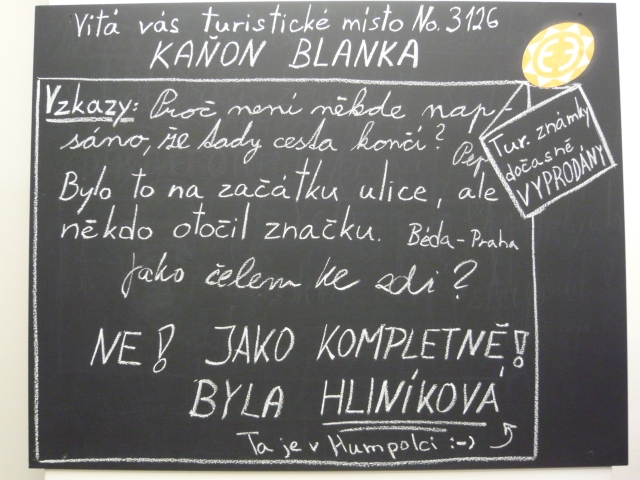 Vitá vás turistické místo No. 3126
KAŇON BLANKA
Vzkazy: Proč není někde nap-
sáno, že tady cesta končí?
Pep
Tur. známky
dočasně
VYPRODÁNY
Bylo to na začátku ulice, ale
někdo otočil značku. Béda-Praha
Jako čelem ke zdi?
NE! JAKO KOMPLETNĚ!
BYLA HLINÍKOVÁ
Ta je v Humpolci :-)